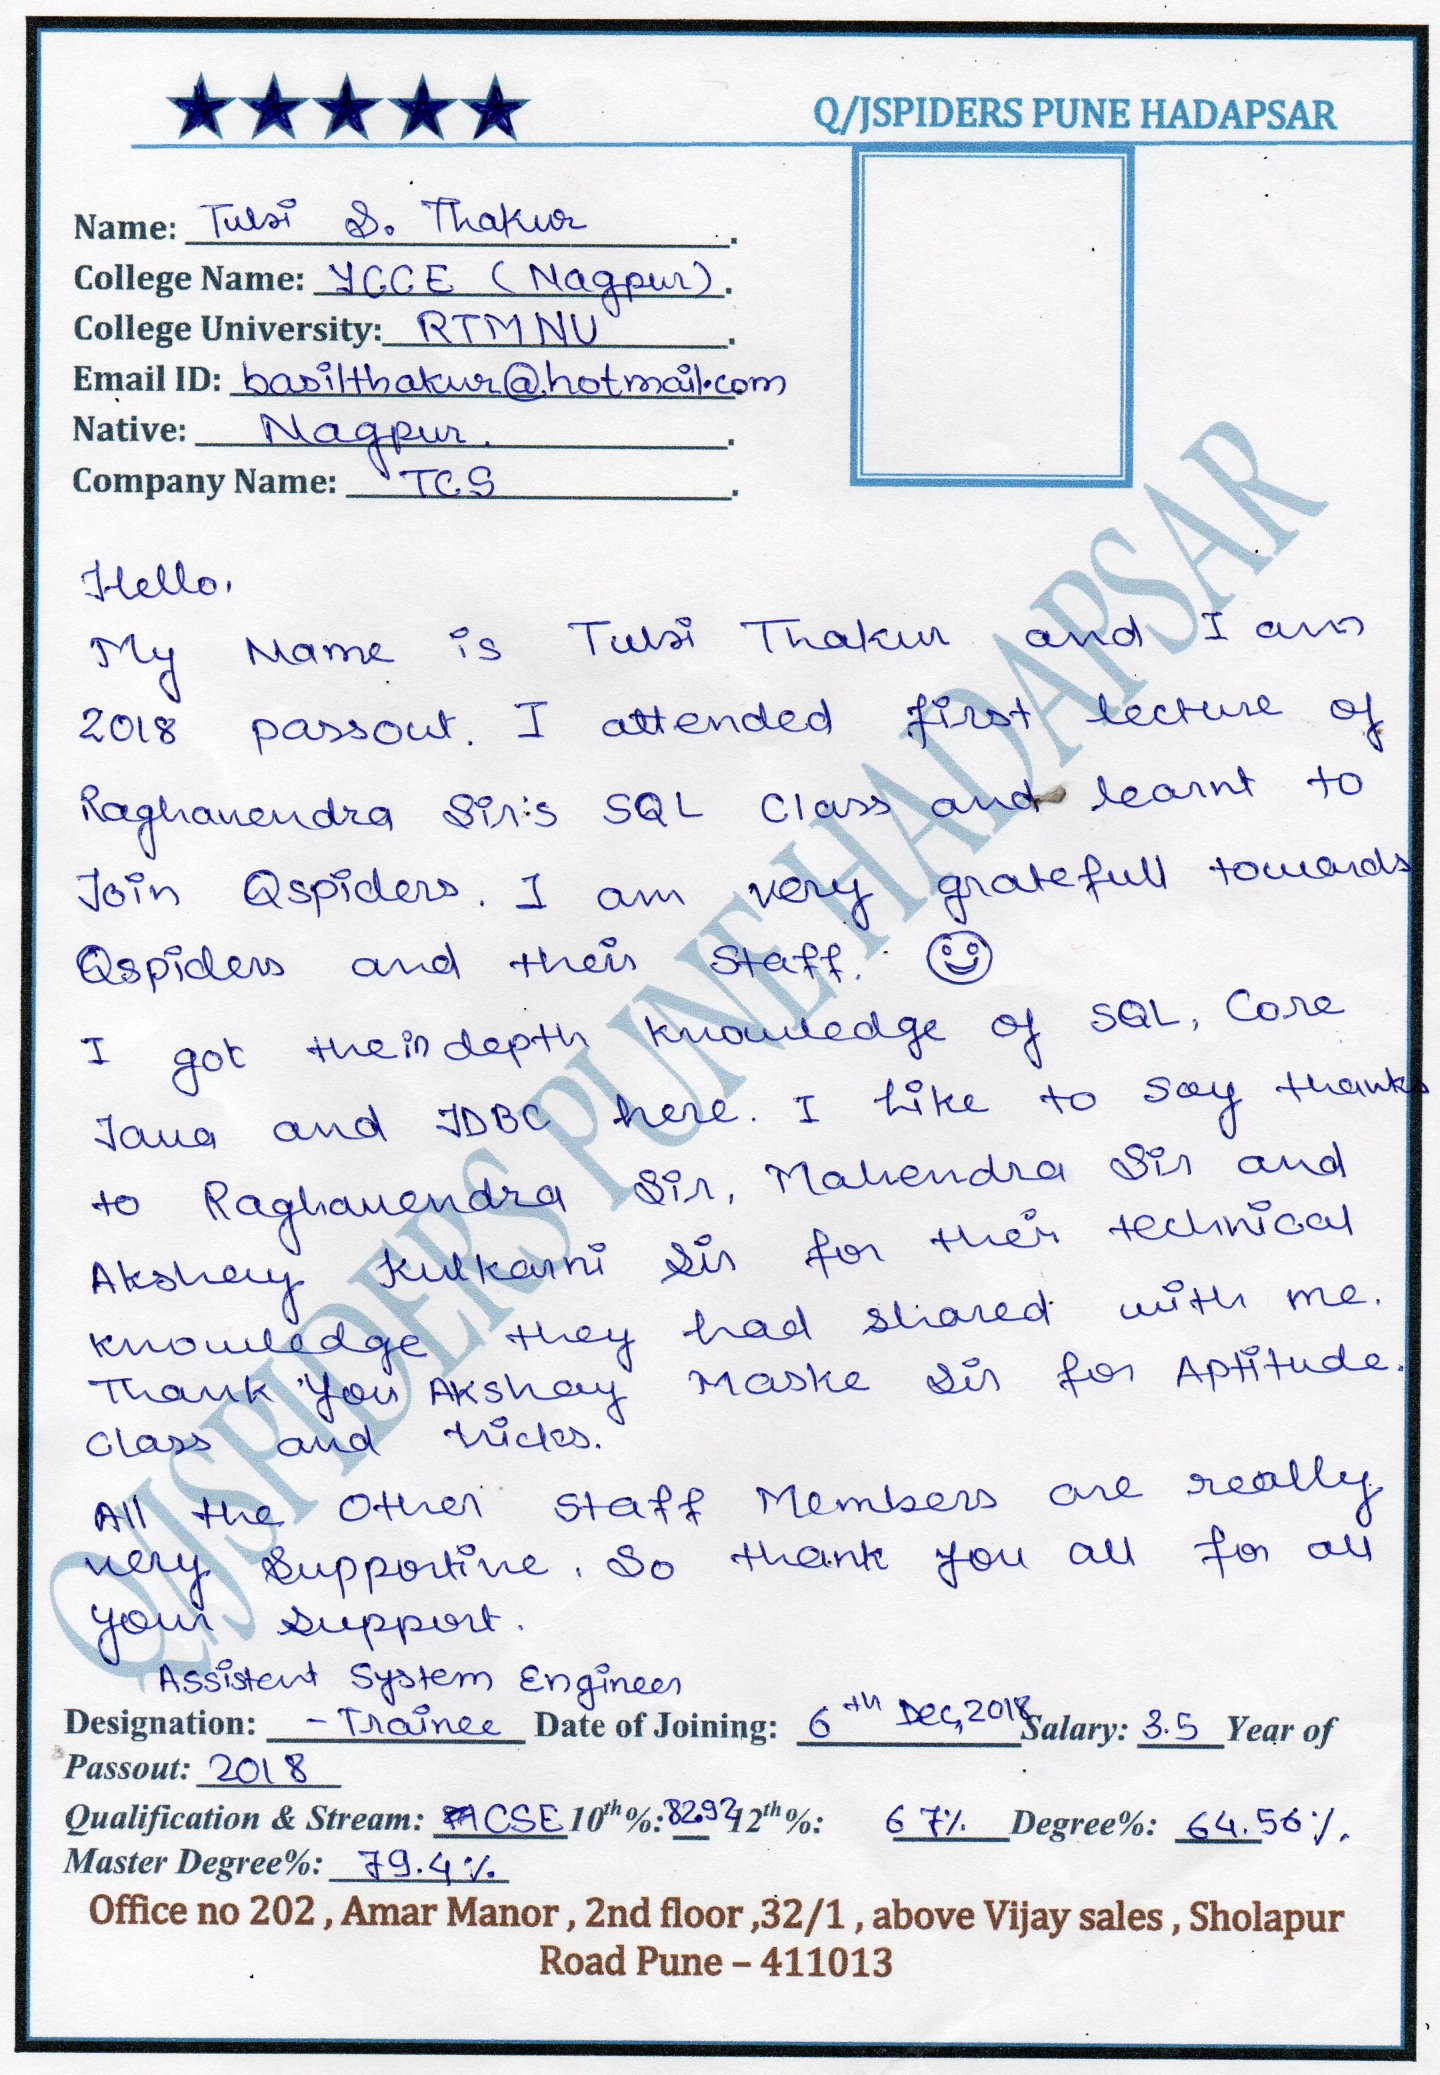 Q/JSPIDERS PUNE HADAPSAR
Name: Tulsi S. Thakur.
College Name: YCCE (Nagpur).
College University: RTMNU.
Email ID: basilthakur@hotmail.com
Native: Nagpur.
Company Name: TCS.
Hello,
My Name is Tulsi Thakur and I am
2018 passout. I attended first lecture of
Raghavendra Sir's SQL Class and learnt to
Join Qspiders. I am very gratefull towards
Qspiders and their Staff.
I got the in depth knowledge of SQL, Core
Java and JDBC here. I like to say thanks
to Raghavendra Sir, Mahendra Sir and
Akshay Kulkarni Sir for their technical
knowledge they had shared with me.
Thank You Akshay Maske Sir for Aptitude.
Class and tricks.
All the Other Staff Members are really
very Supportive. So thank you all for all
your support.
Assistent System Engineer
Designation: - Trainee Date of Joining: 6th Dec, 2018 Salary: 3.5 Year of
Passout: 2018
Qualification & Stream: CSE 10th%: 82.92 12th%: 67% Degree%: 64.56%.
Master Degree%: 79.4%
Office no 202 , Amar Manor , 2nd floor ,32/1 , above Vijay sales , Sholapur
Road Pune – 411013
Q/JSPIDERS PUNE HADAPSAR